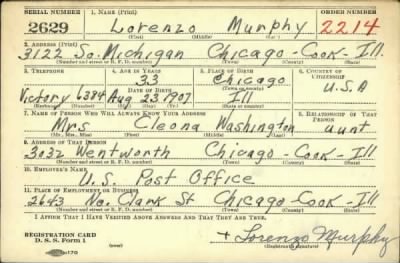 SERIAL NUMBER 1. NAME (Print) ORDER NUMBER
2629 Lorenzo Murphy 2214
(First) (Middle) (Last)
2. ADDRESS (Print)
3122 So. Michigan Chicago - Cook - Ill.
(Number and street or R. F. D. number) (Town) (County) (State)
3. TELEPHONE 4. AGE IN YEARS 5. PLACE OF BIRTH 6. COUNTRY OF CITIZENSHIP
33 Chicago
DATE OF BIRTH (Town or county)
Victory 6384 Aug 23 1907 Ill U.S.A
(Exchange) (Number) (Mo.) (Day) (Yr.) (State or country)
7. NAME OF PERSON WHO WILL ALWAYS KNOW YOUR ADDRESS 8. RELATIONSHIP OF THAT PERSON
Mrs Cleona Washington aunt
(Mr., Mrs., Miss) (First) (Middle) (Last)
9. ADDRESS OF THAT PERSON
3032 Wentworth Chicago - Cook - Ill
(Number and street or R. F. D. number) (Town) (County) (State)
10. EMPLOYER'S NAME
U.S. Post Office
11. PLACE OF EMPLOYMENT OR BUSINESS
2643 No. Clark St Chicago - Cook - Ill
(Number and street or R. F. D. number) (Town) (County) (State)
I AFFIRM THAT I HAVE VERIFIED ABOVE ANSWERS AND THAT THEY ARE TRUE.
REGISTRATION CARD + Lorenzo Murphy
D. S. S. Form 1 (Registrant's signature)